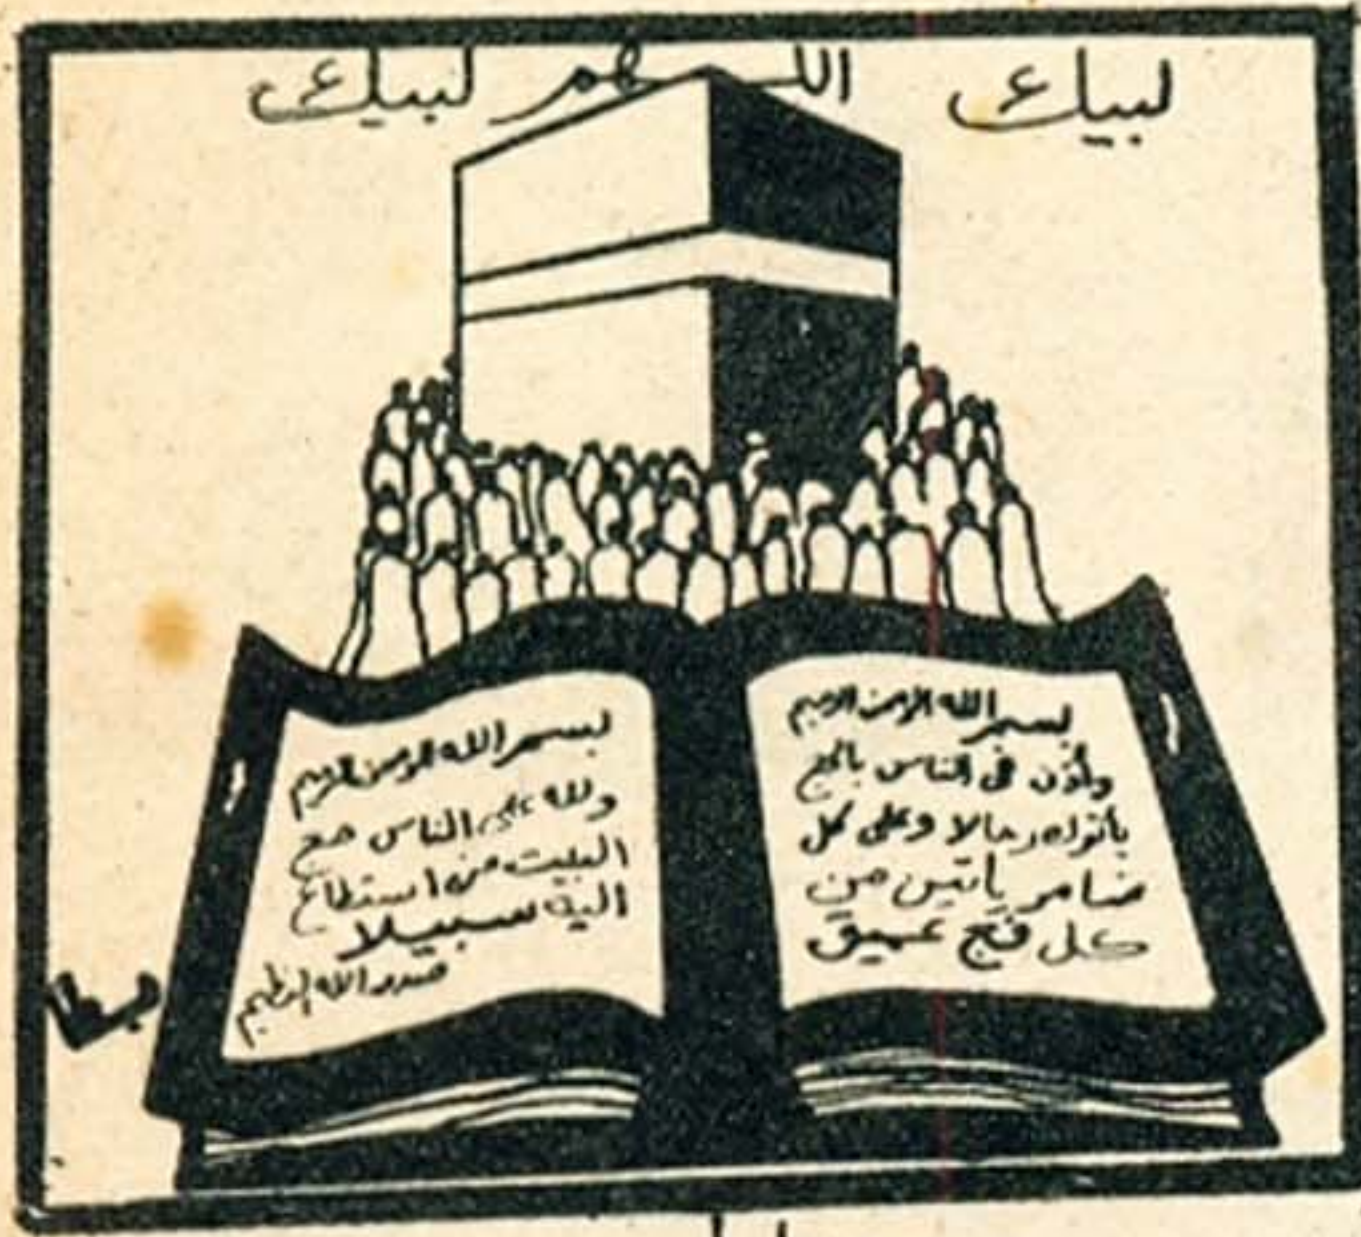 لبيك اللهم لبيك
بسم الله الرحمن الرحيم
وأذن فى الناس بالحج
يأتوك رجالا وعلى كل
ضامر يأتين من
كل فج عميق
بسم الله الرحمن الرحيم
ولله على الناس حج
البيت من استطاع
الية سبيلا
صدق الله العظيم